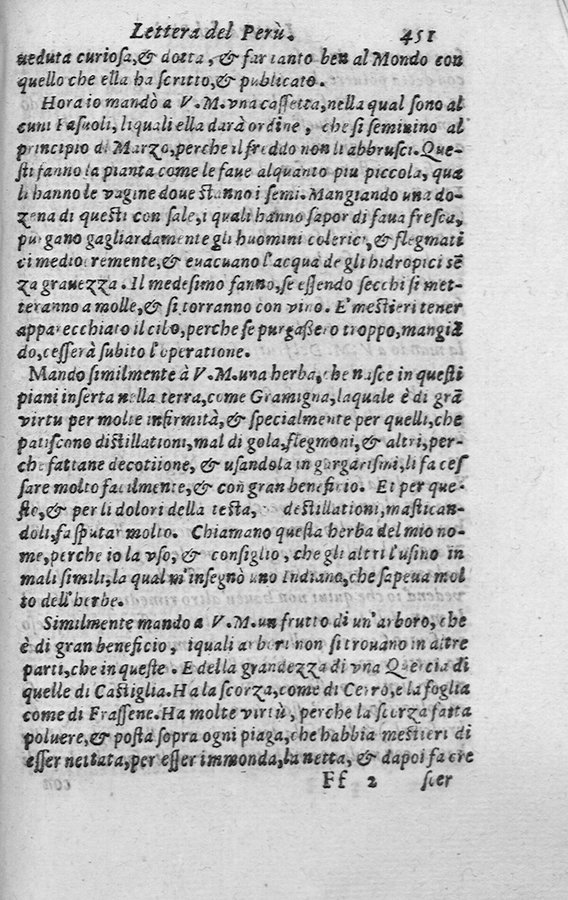 Lettera del Perù. 451
ueduta curiosa, & dotta, & far tanto ben al Mondo con
quello che ella ha scritto, & publicato.
Hora io mandò a V. M. vna cassetta, nella qual sono al
cuni Fasuoli, liquali ella darà ordine, che si seminino al
principio di Marzo, perche il freddo non li abbrusci. Que-
sti fanno la pianta come le faue alquanto piu piccola, qua
li hanno le vagine doue stanno i semi. Mangiando una do-
zena di questi con sale, i quali hanno sapor di faua fresca,
purgano gagliardamente gli huomini colerici, & flegmati
ci mediocremente, & euacuano l'acqua de gli hidropici sẽ
za grauezza. Il medesimo fanno, se essendo secchi si met-
teranno a molle, & si torranno con vino. E' mestieri tener
apparecchiato il cibo, perche se purgaßero troppo, mangiã
do, cesserà subito l'operatione.
Mando similmente à V. M. una herba, che nasce in questi
piani inserta nella terra, come Gramigna, laquale è di grã
virtu per molte infirmità, & specialmente per quelli, che
patiscono distillationi, mal di gola, flegmoni, & altri, per-
che fattane decottione, & usandola in gargarismi, li fa ces
sare molto facilmente, & con gran beneficio. Et per que-
sto, & per li dolori della testa, destillationi, mastican-
doli, fa sputar molto. Chiamano questa herba del mio no-
me, perche io la vso, & consiglio, che gli altri l'usino in
mali simili, la qual m'insegnò uno Indiano, che sapeua mol
to dell'herbe.
Similmente mando a V. M. un frutto di un'arboro, che
è di gran beneficio, i quali arbori non si trouano in altre
parti, che in queste. E della grandezza di vna Quercia di
quelle di Castiglia. Ha la scorza, come di Cerro, e la foglia
come di Frassene. Ha molte virtù, perche la scorza fatta
poluere, & posta sopra ogni piaga, che habbia mestieri di
esser nettata, per esser immonda, la netta, & dapoi fa cre
Ff 2 scer